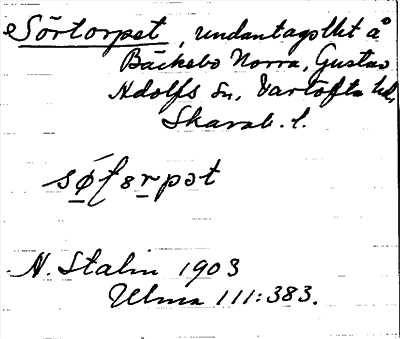 Sörtorpet, undantagslht å
Bäckebo Norra, Gustav
Adolfs sn, Vartofta hd,
Skarab. l.
N. Stalin 1903
Ulma 111:383.